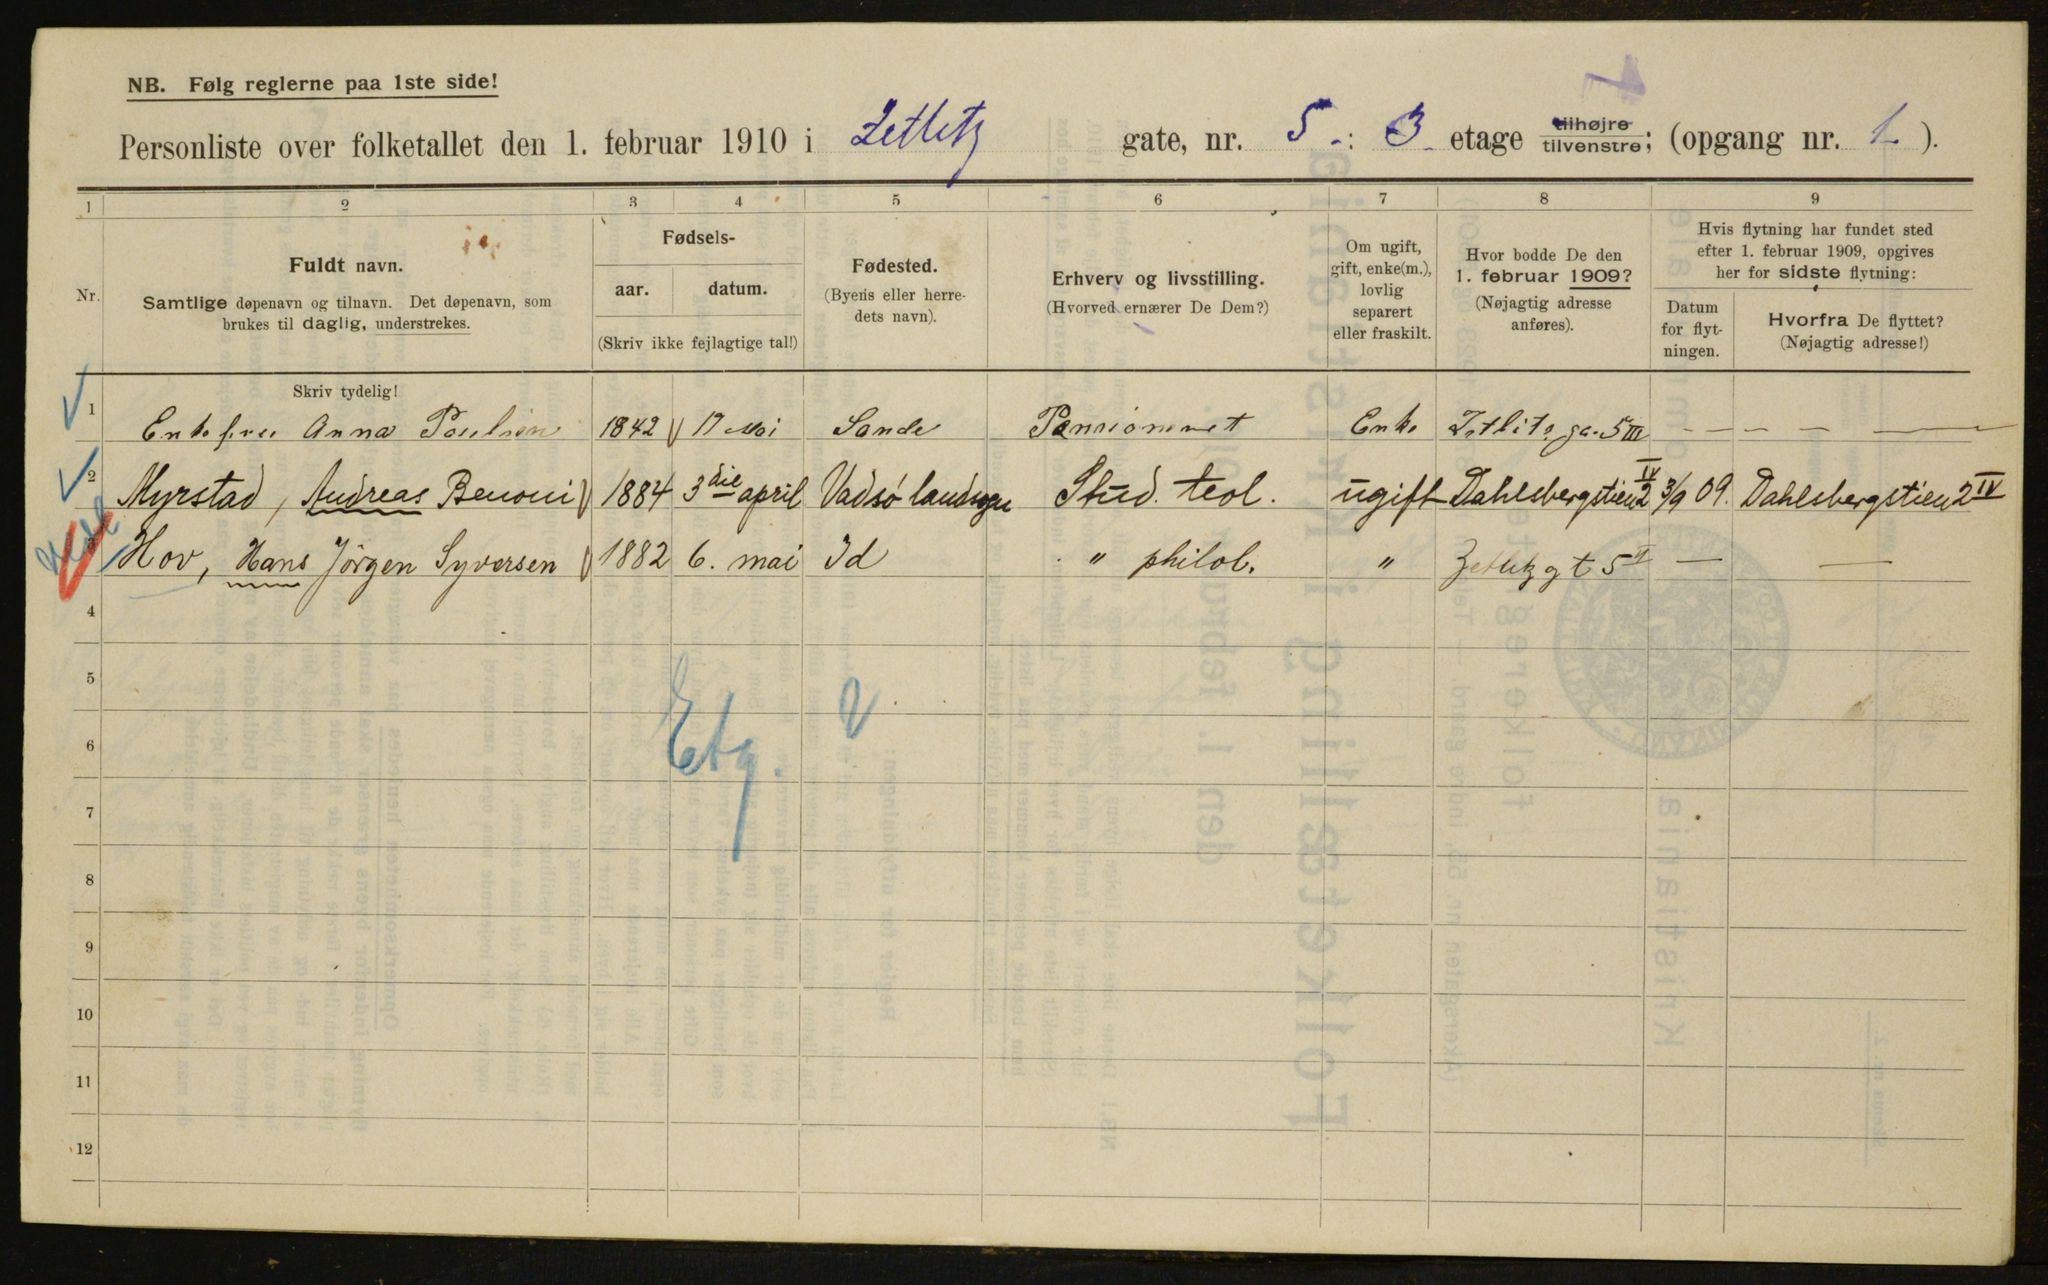 NB. Følg reglerne paa 1ste side!
Personliste over folketallet den 1. februar 1910 i Zetlitz gate, nr. 5 : 3 etage tilhøjre tilvenstre; (opgang nr. 1 ).
1 2 3 4 5 6 7 8 9
Nr.
Fuldt navn.
Samtlige døpenavn og tilnavn. Det døpenavn, som
brukes til daglig, understrekes.
Fødsels-
aar. datum.
(Skriv ikke fejlagtige tal!)
Fødested.
(Byens eller herre-
dets navn).
Erhverv og livsstilling.
(Hvorved ernærer De Dem?)
Om ugift,
gift, enke(m.),
lovlig
separert
eller fraskilt.
Hvor bodde De den
1. februar 1909?
(Nøjagtig adresse
anføres).
Hvis flytning har fundet sted
efter 1. februar 1909, opgives
her for sidste flytning:
Datum
for flyt-
ningen.
Hvorfra De flyttet?
(Nøjagtig adresse!)
Skriv tydelig!
1 Enkefrue Anna Poulsen 1842 17 Mai Sande Enke Zetlitz ga. 5 III
2 Myrstad, Andreas Benoni 1884 3die april Vadsø landsogn Stud. teol. ugift Dahlsbergstien 2 IV 3/9 09. Dahlsbergstien 2 IV
3 Hov, Hans Jörgen Syversen 1882 6. mai Id " philol. " Zetlitzgt 5 II —
4
5
6
7
8
9
10
11
12
Etg. 2